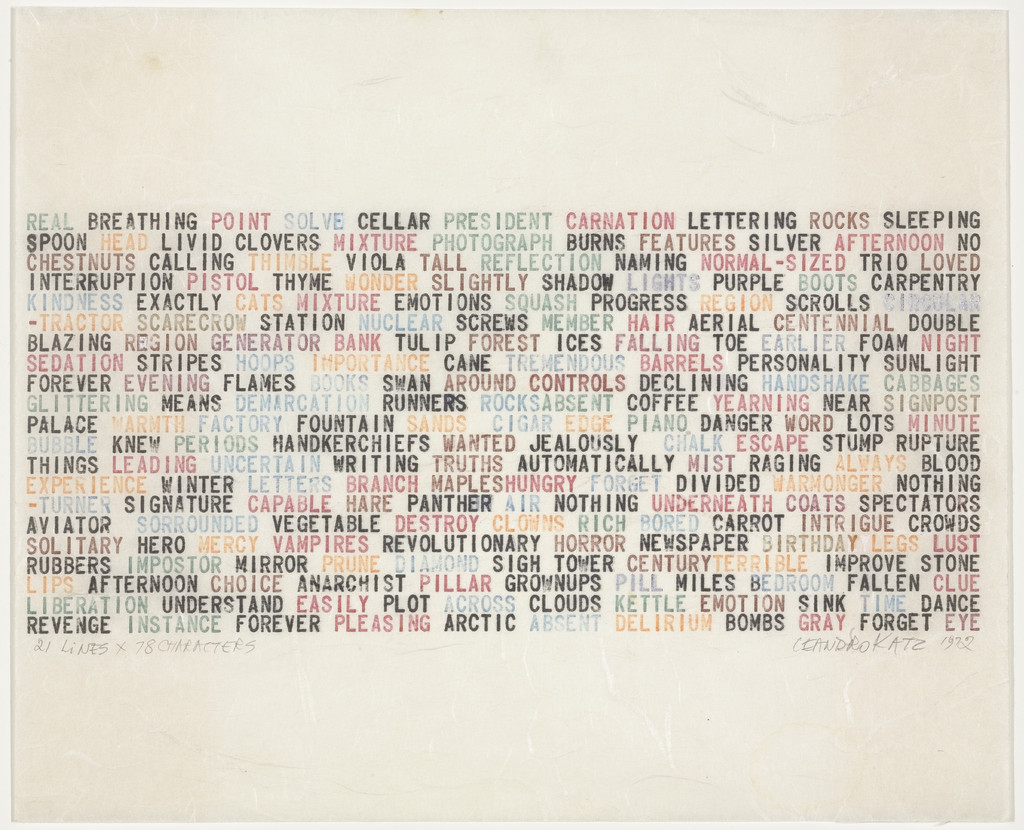 REAL BREATHING POINT SOLVE CELLAR PRESIDENT CARNATION LETTERING ROCKS SLEEPING
SPOON HEAD LIVID CLOVERS MIXTURE PHOTOGRAPH BURNS FEATURES SILVER AFTERNOON NO
CHESTNUTS CALLING THIMBLE VIOLA TALL REFLECTION NAMING NORMAL-SIZED TRIO LOVED
INTERRUPTION PISTOL THYME WONDER SLIGHTLY SHADOW LIGHTS PURPLE BOOTS CARPENTRY
KINDNESS EXACTLY CATS MIXTURE EMOTIONS SQUASH PROGRESS REGION SCROLLS CIRCULAR
-TRACTOR SCARECROW STATION NUCLEAR SCREWS MEMBER HAIR AERIAL CENTENNIAL DOUBLE
BLAZING REGION GENERATOR BANK TULIP FOREST ICES FALLING TOE EARLIER FOAM NIGHT
SEDATION STRIPES HOOPS IMPORTANCE CANE TREMENDOUS BARRELS PERSONALITY SUNLIGHT
FOREVER EVENING FLAMES BOOKS SWAN AROUND CONTROLS DECLINING HANDSHAKE CABBAGES
GLITTERING MEANS DEMARCATION RUNNERS ROCKSABSENT COFFEE YEARNING NEAR SIGNPOST
PALACE WARMTH FACTORY FOUNTAIN SANDS CIGAR EDGE PIANO DANGER WORD LOTS MINUTE
BUBBLE KNEW PERIODS HANDKERCHIEFS WANTED JEALOUSLY CHALK ESCAPE STUMP RUPTURE
THINGS LEADING UNCERTAIN WRITING TRUTHS AUTOMATICALLY MIST RAGING ALWAYS BLOOD
EXPERIENCE WINTER LETTERS BRANCH MAPLESHUNGRY FORGET DIVIDED WARMONGER NOTHING
-TURNER SIGNATURE CAPABLE HARE PANTHER AIR NOTHING UNDERNEATH COATS SPECTATORS
AVIATOR SORROUNDED VEGETABLE DESTROY CLOWNS RICH BORED CARROT INTRIGUE CROWDS
SOLITARY HERO MERCY VAMPIRES REVOLUTIONARY HORROR NEWSPAPER BIRTHDAY LEGS LUST
RUBBERS IMPOSTOR MIRROR PRUNE DIAMOND SIGH TOWER CENTURYTERRIBLE IMPROVE STONE
LIPS AFTERNOON CHOICE ANARCHIST PILLAR GROWNUPS PILL MILES BEDROOM FALLEN CLUE
LIBERATION UNDERSTAND EASILY PLOT ACROSS CLOUDS KETTLE EMOTION SINK TIME DANCE
REVENGE INSTANCE FOREVER PLEASING ARCTIC ABSENT DELIRIUM BOMBS GRAY FORGET EYE
21 LINES X 78 CHARACTERS LEANDRO KATZ 1972